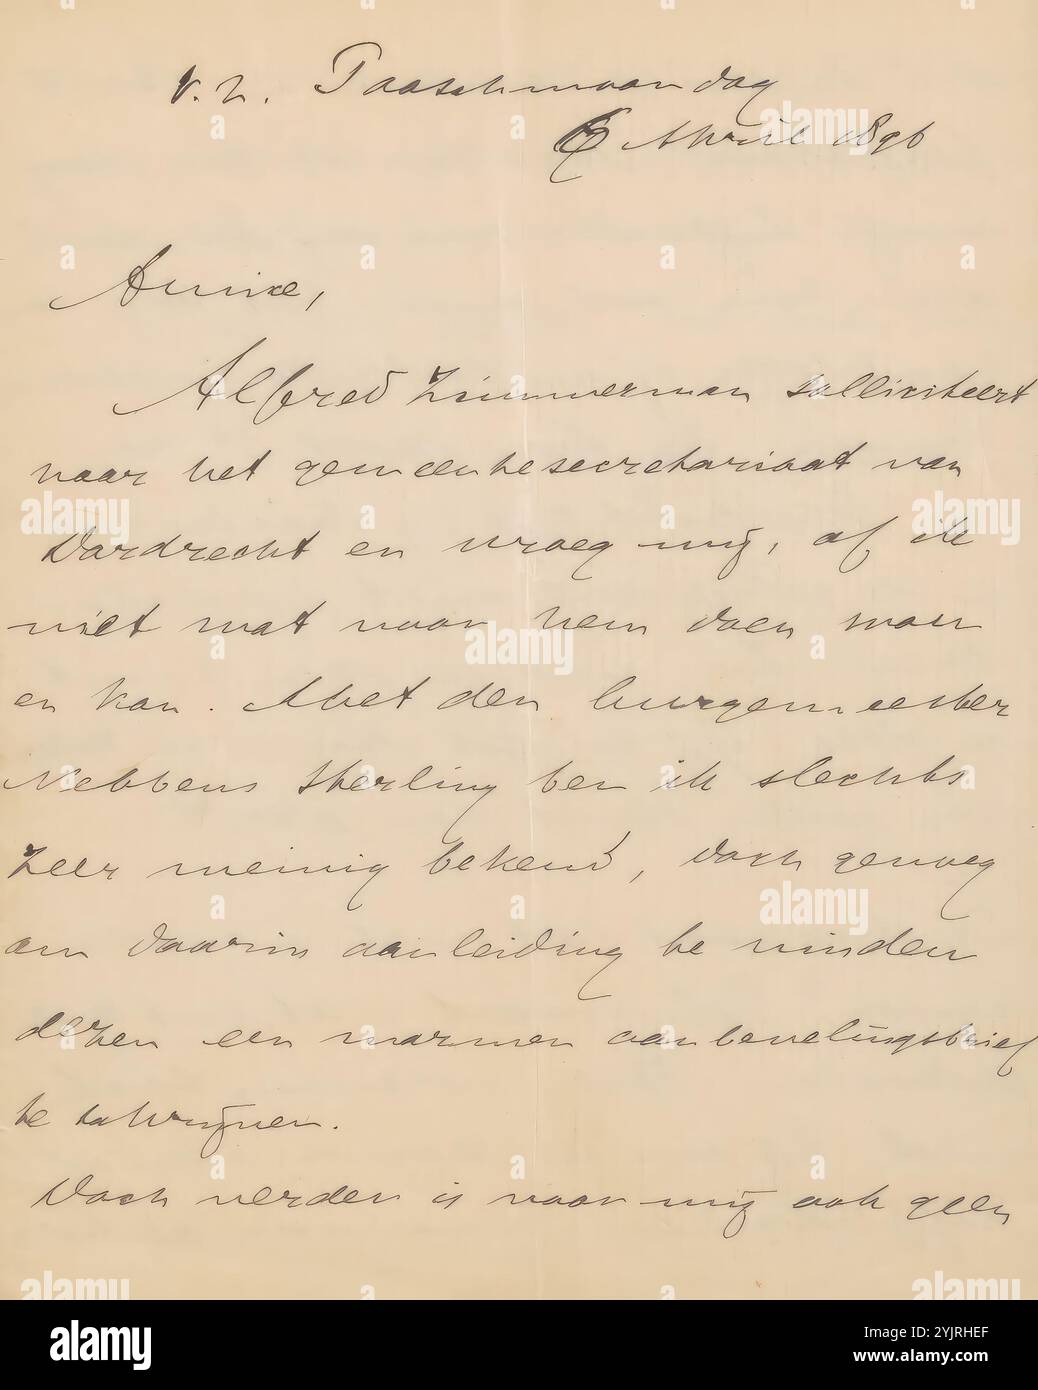 v. h. Paaschmaandag
6 April 1896
Amice,
Alfred Zimmerman solliciteert
naar het gemeentesecretariaat van
Dordrecht en vroeg mij, of ik
niet wat voor hem doen wou
en kon. Met den burgemeester
Nebbens Sterling ben ik slechts
zeer weinig bekend, doch genoeg
om daarin aanleiding te vinden
dezen een warmen aanbevelingsbrief
te schrijven.
Doch verder is voor mij ook geen
alamy
Image ID: 2YJRHEF
www.alamy.com